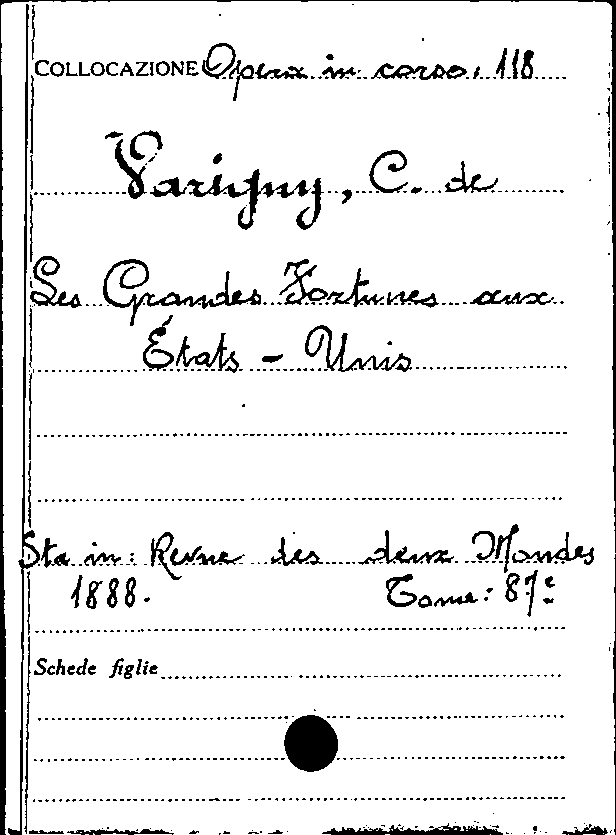 COLLOCAZIONE Opera in corso. 118
Varigny, C. de
Les Grandes Fortunes aux
États - Unis
Sta in: Revue des deux Mondes
1888. Tome: 87e
Schede figlie